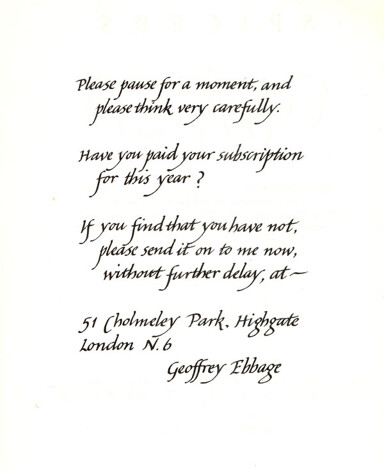 Please pause for a moment, and
please think very carefully.
Have you paid your subscription
for this year ?
If you find that you have not,
please send it on to me now,
without further delay, at ~
51 Cholmeley Park. Highgate
London N.6
Geoffrey Ebbage